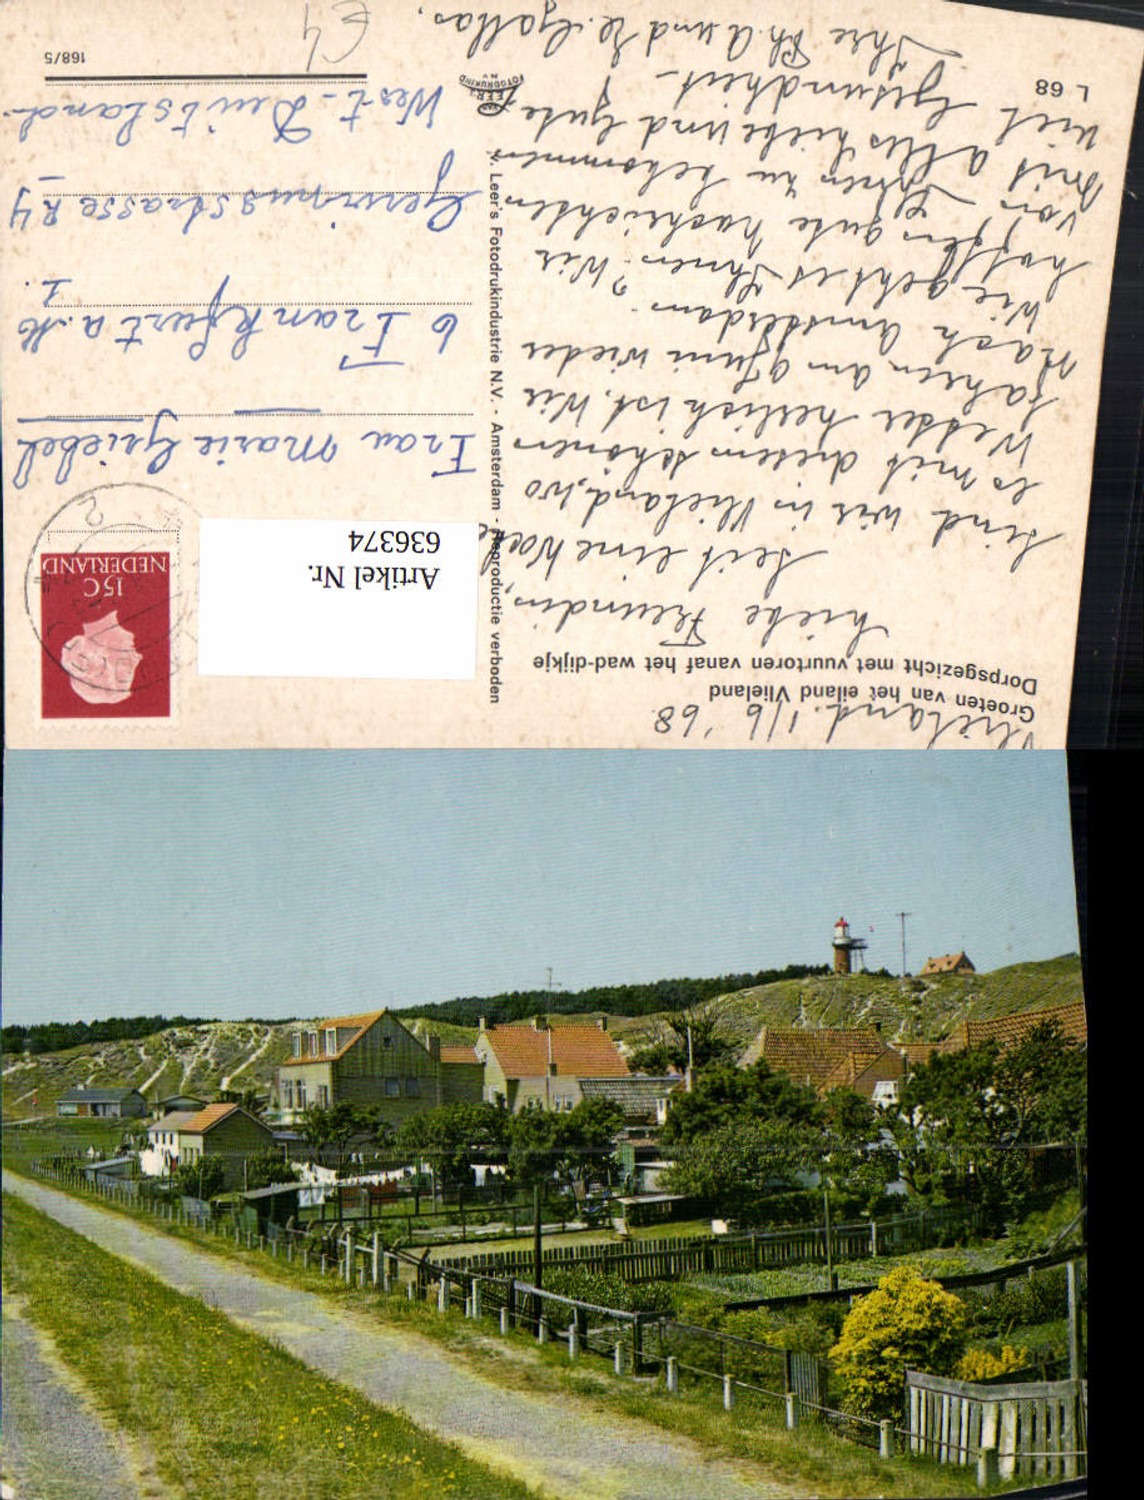 Vlieland. 1/6 '68.
Groeten van het eiland Vlieland
Dorpsgezicht met vuurtoren vanaf het wad-dijkje
Liebe Freundin,
Seit eine Woche
sind wir in Vlieland, wo
es mit diesem schönen
Wetter herlich ist. Wir
fahren am 9 Juni wieder
nach Amsterdam.
Wie geht es Ihnen? Wir
hoffen gute Nachrichten
von Ihnen zu bekommen
mit alles Liebe und Gute
viel Gesundheit-
Ihre Ph. A und H. Gallas.
L 68
v. Leer's Fotodrukindustrie N.V. - Amsterdam - Reproductie verboden
LEER'S
FOTODRUKIND
N.V.
NEDERLAND
15C
Artikel Nr.
636374
Frau Marie Griebel
6 Frankfurt a. M
1.
Gervinusstrasse 24
West-Deutsland.
168/5